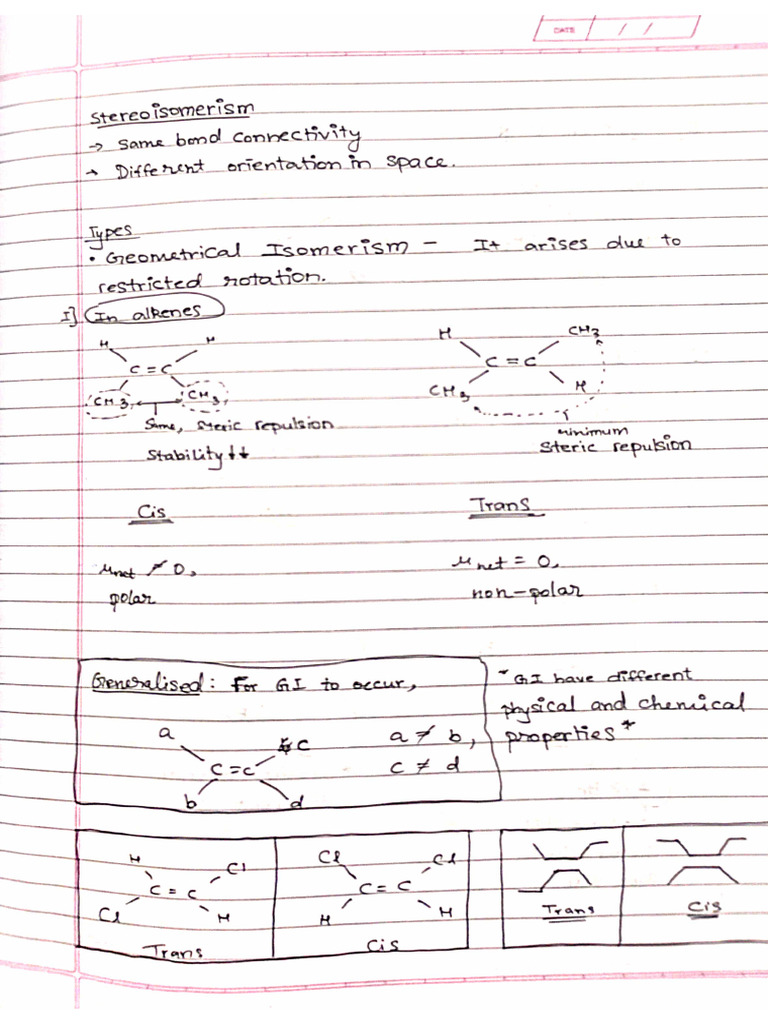 DATE / /
Stereoisomerism
→ Same bond connectivity
→ Different orientation in space.
Types
• Geometrical Isomerism - It arises due to
restricted rotation.
I] In alkenes
H H
C = C
CH3 CH3
Same, steric repulsion
Stability ↓↓
H CH3
C = C
CH3 H
minimum
steric repulsion
Cis
Trans
μnet ≠ 0,
polar
μnet = 0,
non-polar
Generalised: For GI to occur,
a c a ≠ b,
C = C c ≠ d
b d
* GI have different
physical and chemical
properties *
H Cl
C = C
Cl H
Trans
Cl Cl
C = C
H H
Cis
Trans
Cis